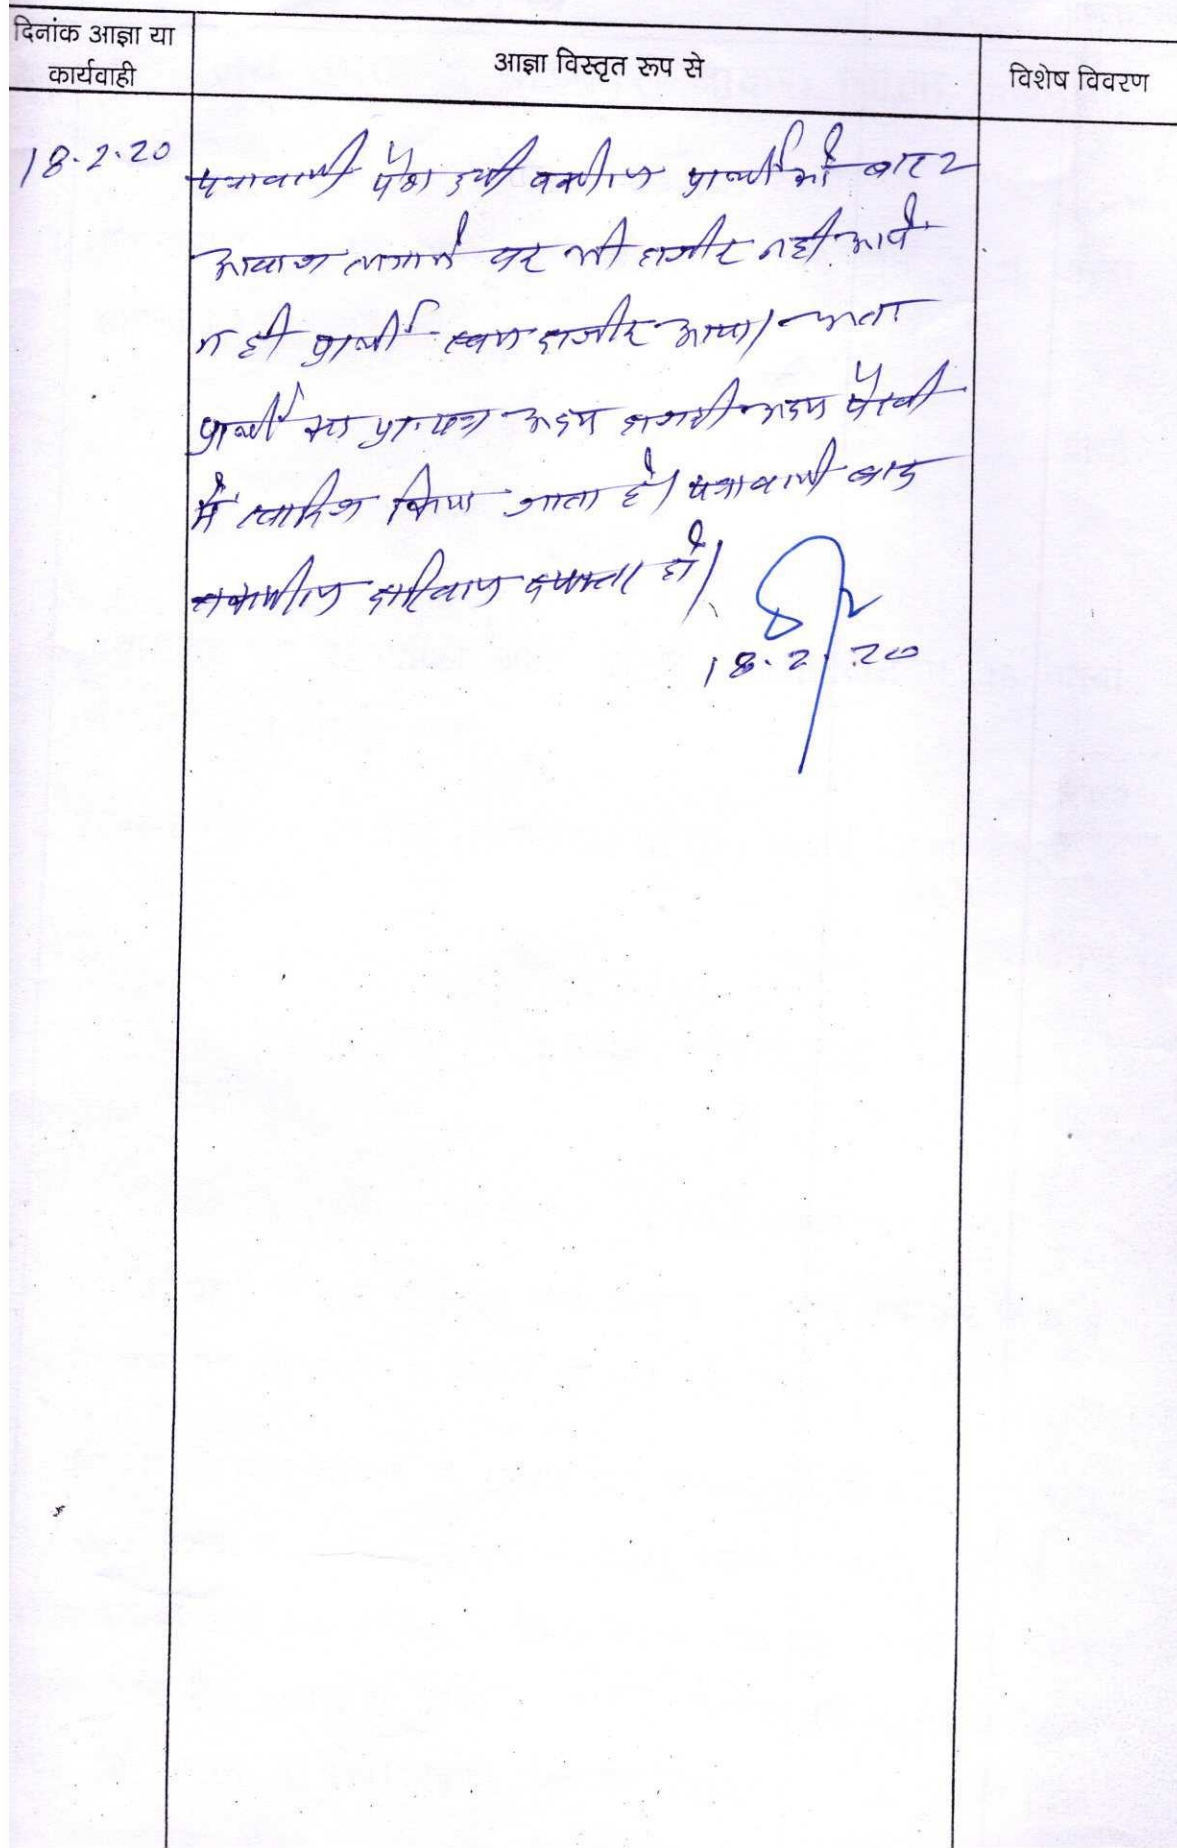 दिनांक आज्ञा या
कार्यवाही
आज्ञा विस्तृत रूप से
विशेष विवरण
18.2.20
पत्रावली पेश हुयी वकील प्रार्थी को बार 2
आवाज लगाने पर भी हाजीर नही आये
न ही प्रार्थी स्वयं हाजीर आया। अतः
प्रार्थी का प्रा.पत्र अदम हाजरी अदम पैरवी
में खारिज किया जाता है। पत्रावली बाद
तकमील दाखिल दफ्तर हो।
18.2.20